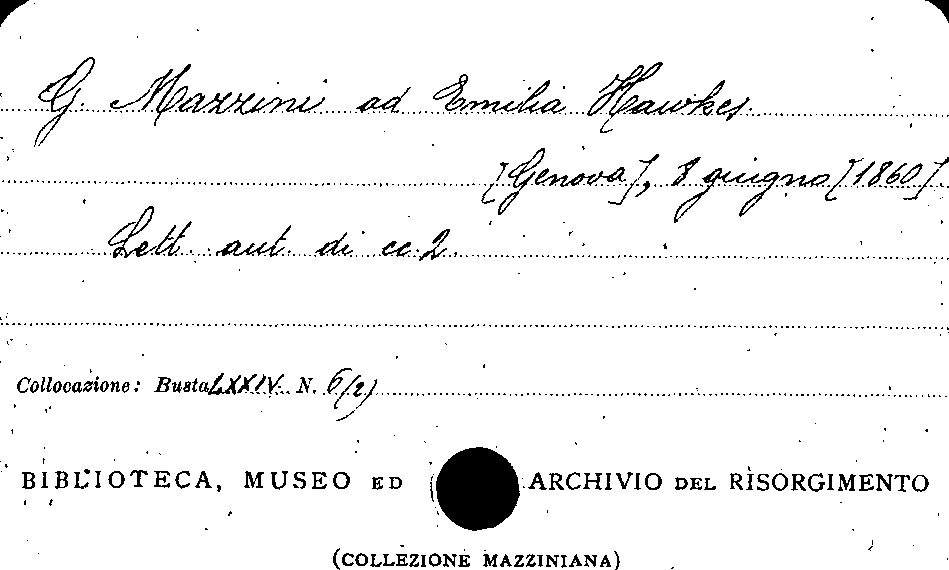 G. Mazzini ad Emilia Hawkes.
[Genova], 8 giugno [1860]
Lett. aut. di cc. 2.
Collocazione: Busta LXXIV. N. 6(2)
BIBLIOTECA, MUSEO ED ARCHIVIO DEL RISORGIMENTO
(COLLEZIONE MAZZINIANA)